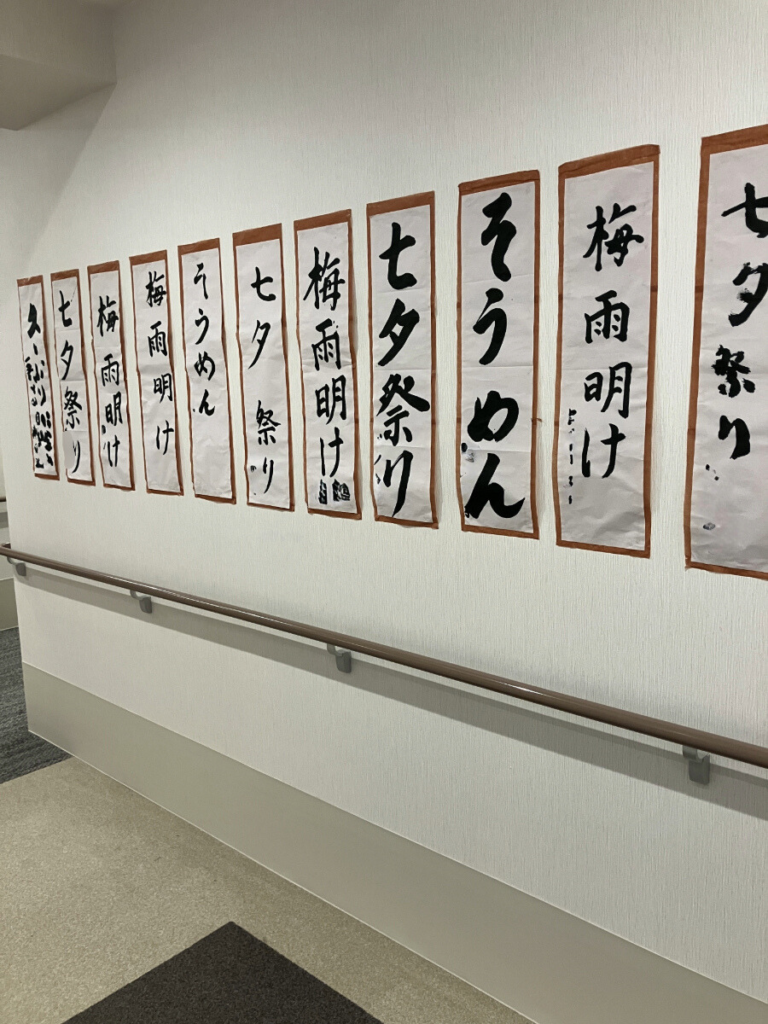 七夕祭り
梅雨明け
そうめん
七夕祭り
梅雨明け
七夕祭り
そうめん
梅雨明け
梅雨明け
七夕祭り